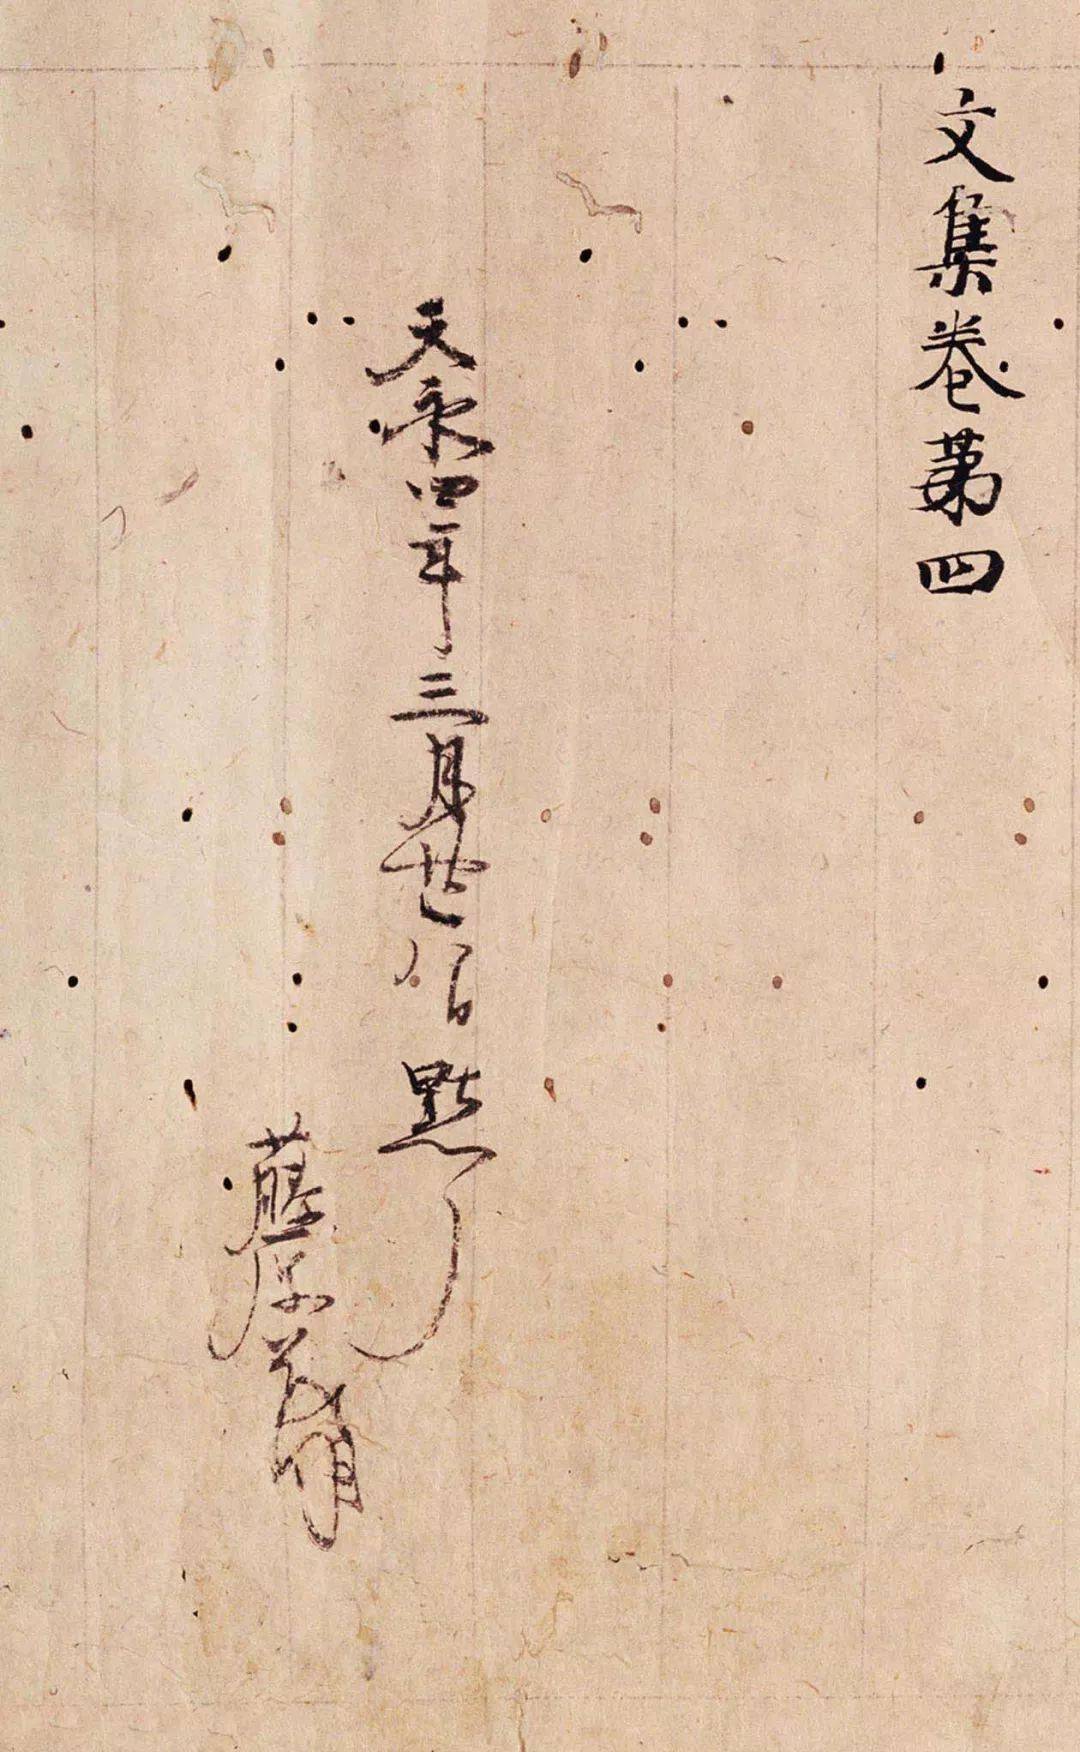 文集卷第四
天永四年三月廿八日點了
藤原茂明